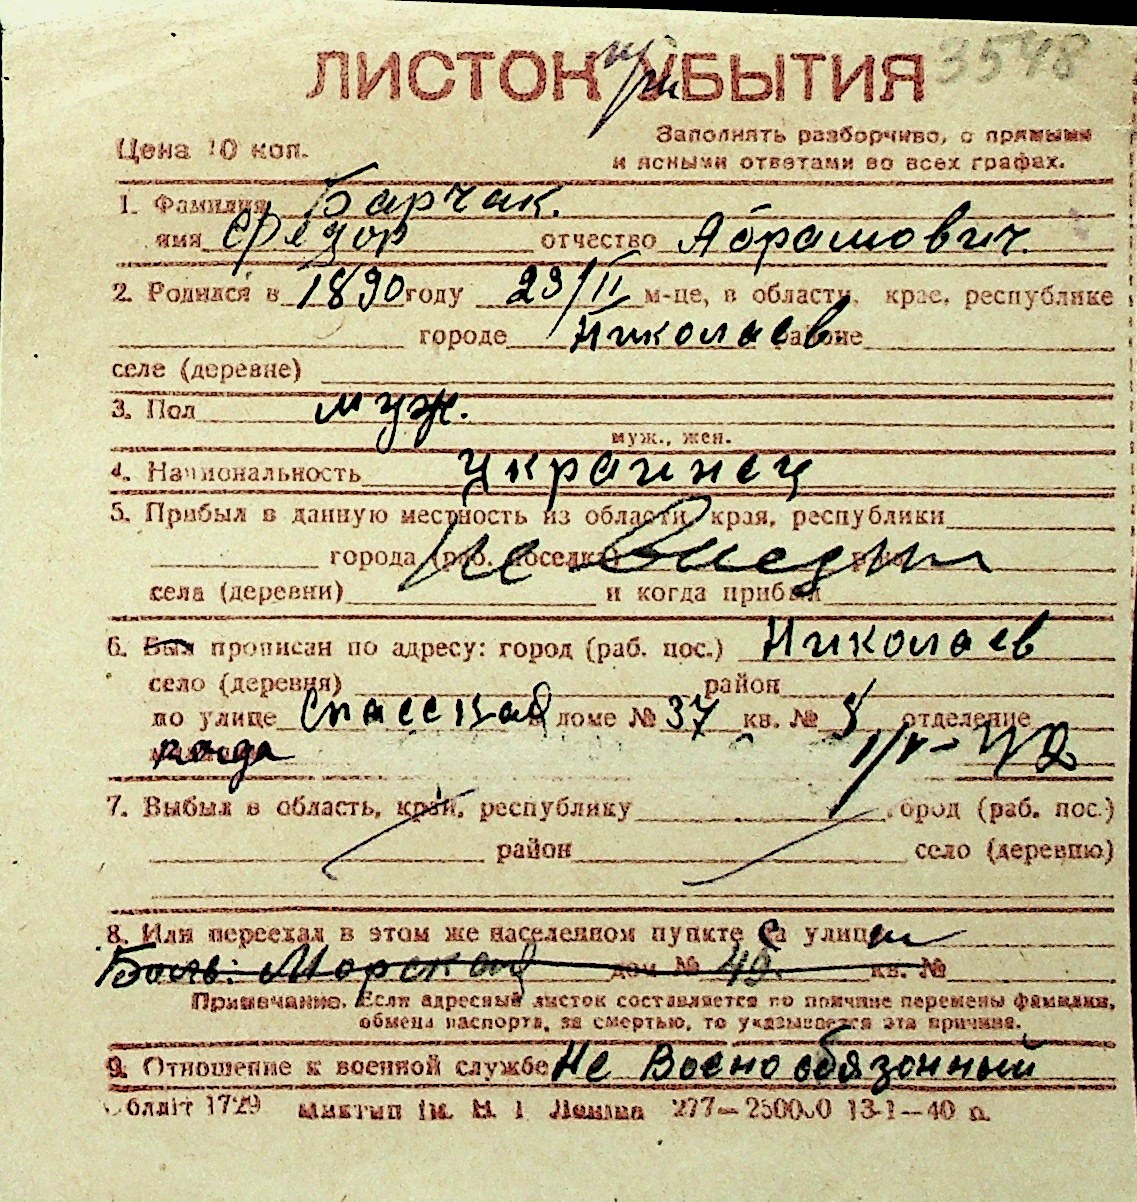 ЛИСТОК при УБЫТИЯ 3548
Цена 10 коп.
Заполнять разборчиво, с прямыми
и ясными ответами во всех графах.
1. Фамилия Барчак.
имя Федор отчество Абрамович
2. Родился в 1890 году 23/II м-це, в области, крае, республике
городе Николаев районе
селе (деревне)
3. Пол муж.
муж., жен.
4. Национальность украинец
5. Прибыл в данную местность из области, края, республики
города (раб. поселка)
не
села (деревни) и когда прибыл
6. Был прописан по адресу: город (раб. пос.) Николаев
село (деревня) район
по улице Спасская доме № 37 кв. № отделение
7. Выбыл в область, край, республику город (раб. пос.)
район село (деревню)
8. Или переехал в этом же населенном пункте с улицы
Больш: Морская дом № 49. кв. №
Примечание. Если адресный листок составляется по причине перемены фамилии,
обмена паспорта, за смертью, то указывается эта причина.
9. Отношение к военной службе Не Военообязонный
Облліт 1729 Миктип ім. В. І Леніна 277—250000 13-1—40 р.